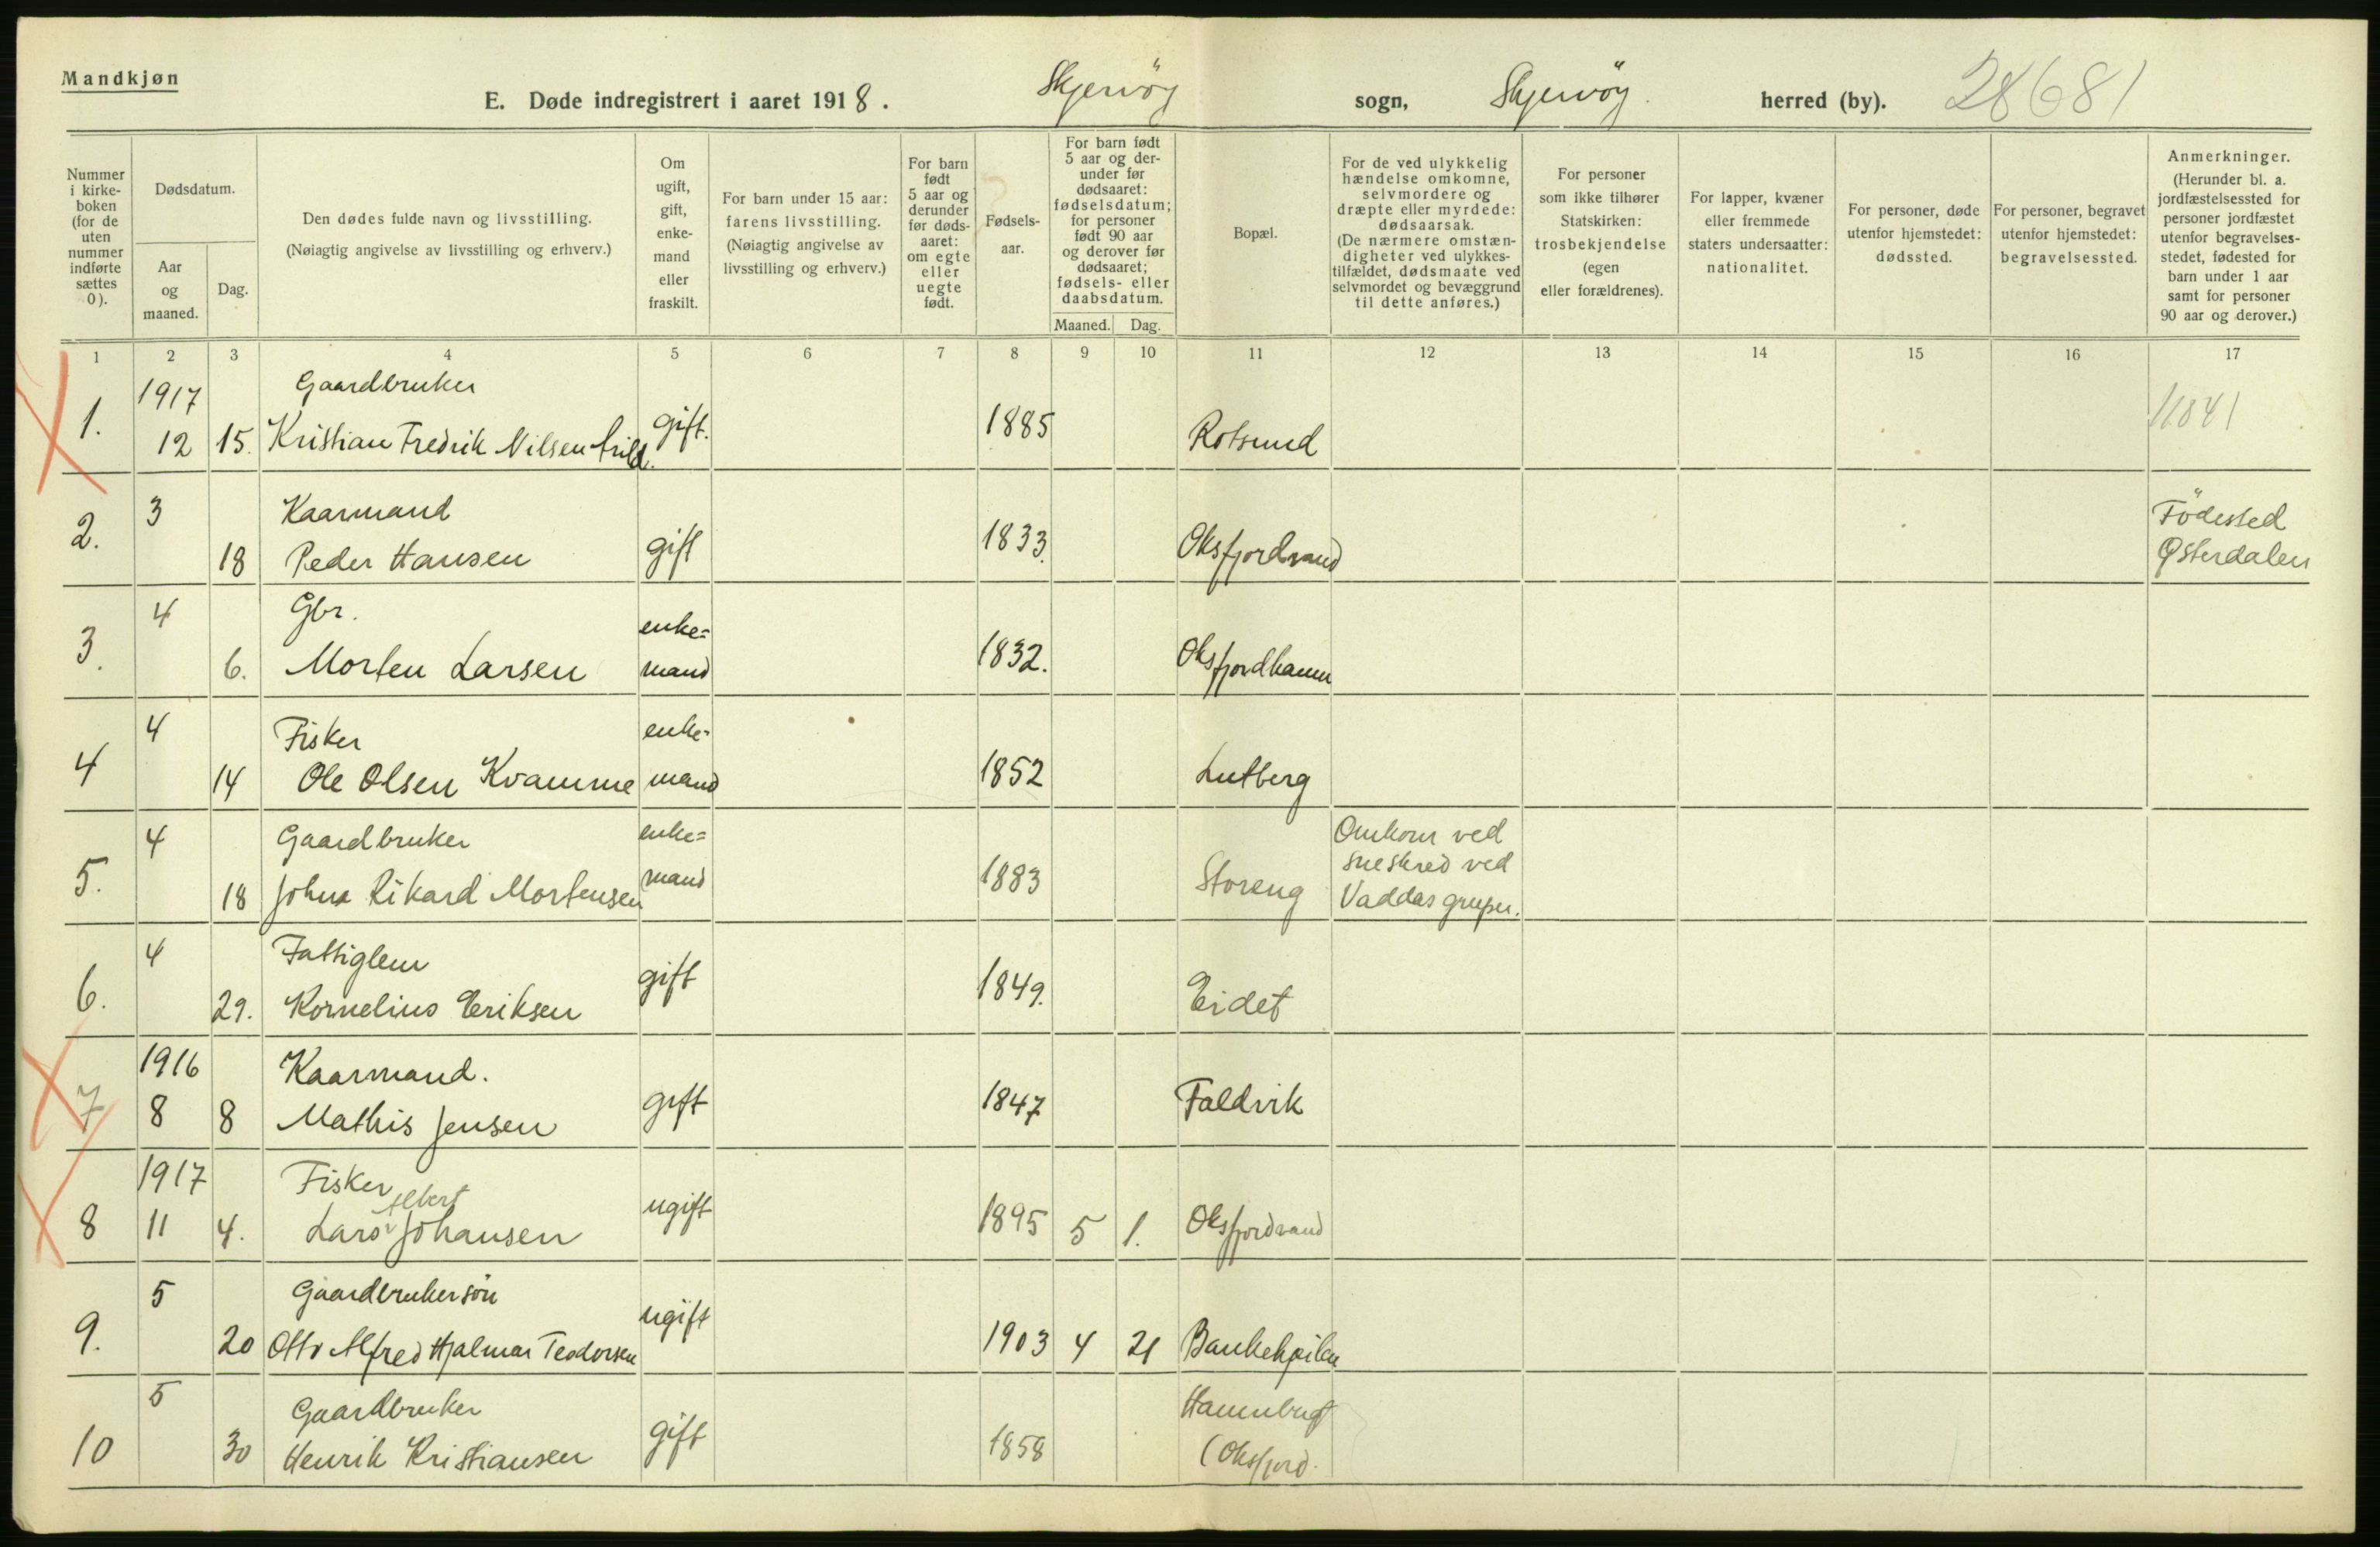 Mandkjøn
E. Døde indregistrert i aaret 1918. Skjervöy sogn, Skjervöy. herred (by). 28681
Nummer i kirke- boken (for de uten nummer indførte sættes 0).
Dødsdatum.
Aar og maaned.
Dag.
Den dødes fulde navn og livsstilling.
(Nøiagtig angivelse av livsstilling og erhverv.)
Om ugift, gift, enke- mand eller fraskilt.
For barn under 15 aar: farens livsstilling. (Nøiagtig angivelse av livsstilling og erhverv.)
For barn født 5 aar og derunder før døds- aaret: om egte eller uegte født.
Fødsels- aar.
For barn født 5 aar og der- under før dødsaaret: fødselsdatum; for personer født 90 aar og derover før dødsaaret; fødsels- eller daabsdatum.
Maaned. Dag.
Bopæl.
For de ved ulykkelig hændelse omkomne, selvmordere og dræpte eller myrdede: dødsaarsak. (De nærmere omstæn- digheter ved ulykkes- tilfældet, dødsmaate ved selvmordet og bevæggrund til dette anføres.)
For personer som ikke tilhører Statskirken: trosbekjendelse (egen eller forældrenes).
For lapper, kvæner eller fremmede staters undersaatter: nationalitet.
For personer, døde utenfor hjemstedet: dødssted.
For personer, begravet utenfor hjemstedet: begravelsessted.
Anmerkninger. (Herunder bl. a. jordfæstelsessted for personer jordfæstet utenfor begravelses- stedet, fødested for barn under 1 aar samt for personer 90 aar og derover.)
1 2 3 4 5 6 7 8 9 10 11 12 13 14 15 16 17
1917 Gaardbruker
1. 12 15. Kristian Fredrik Nilsen gift. 1885 Rotsund 11841
3 Kaarmand Födested
2. 18 Peder Hansen gift 1833. Oksfjordvand Østerdalen
4 Gbr. enke=
3. 6. Morten Larsen mand 1832. Oksfjordhamn
4 Fisker enke-
4 14 Ole Olsen Kvamme mand 1852 Lutberg
4 Gaardbruker enke= Omkom ved
5. 18 Johns Rikard Mortensen mand 1883 Storeng sneskred ved
Vaddas gruper.
4 Fattiglem
6. 29. Kornelius Eriksen gift 1849. Eidet
1916 Kaarmand.
7 8 8 Mathis Jensen gift 1847 Faldvik
1917 Fisker
Albert
8 11 4. Lars Johansen ugift 1895 5 1. Oksfjordvand
5 Gaardbrukersön
9. 20 Otto Alfred Hjalmar Teodorsen ugift 1903 4 21 Bankekeilen
5 Gaardbruker Hamnbugt
10 30 Henrik Kristiansen gift 1858 (Oksfjord.